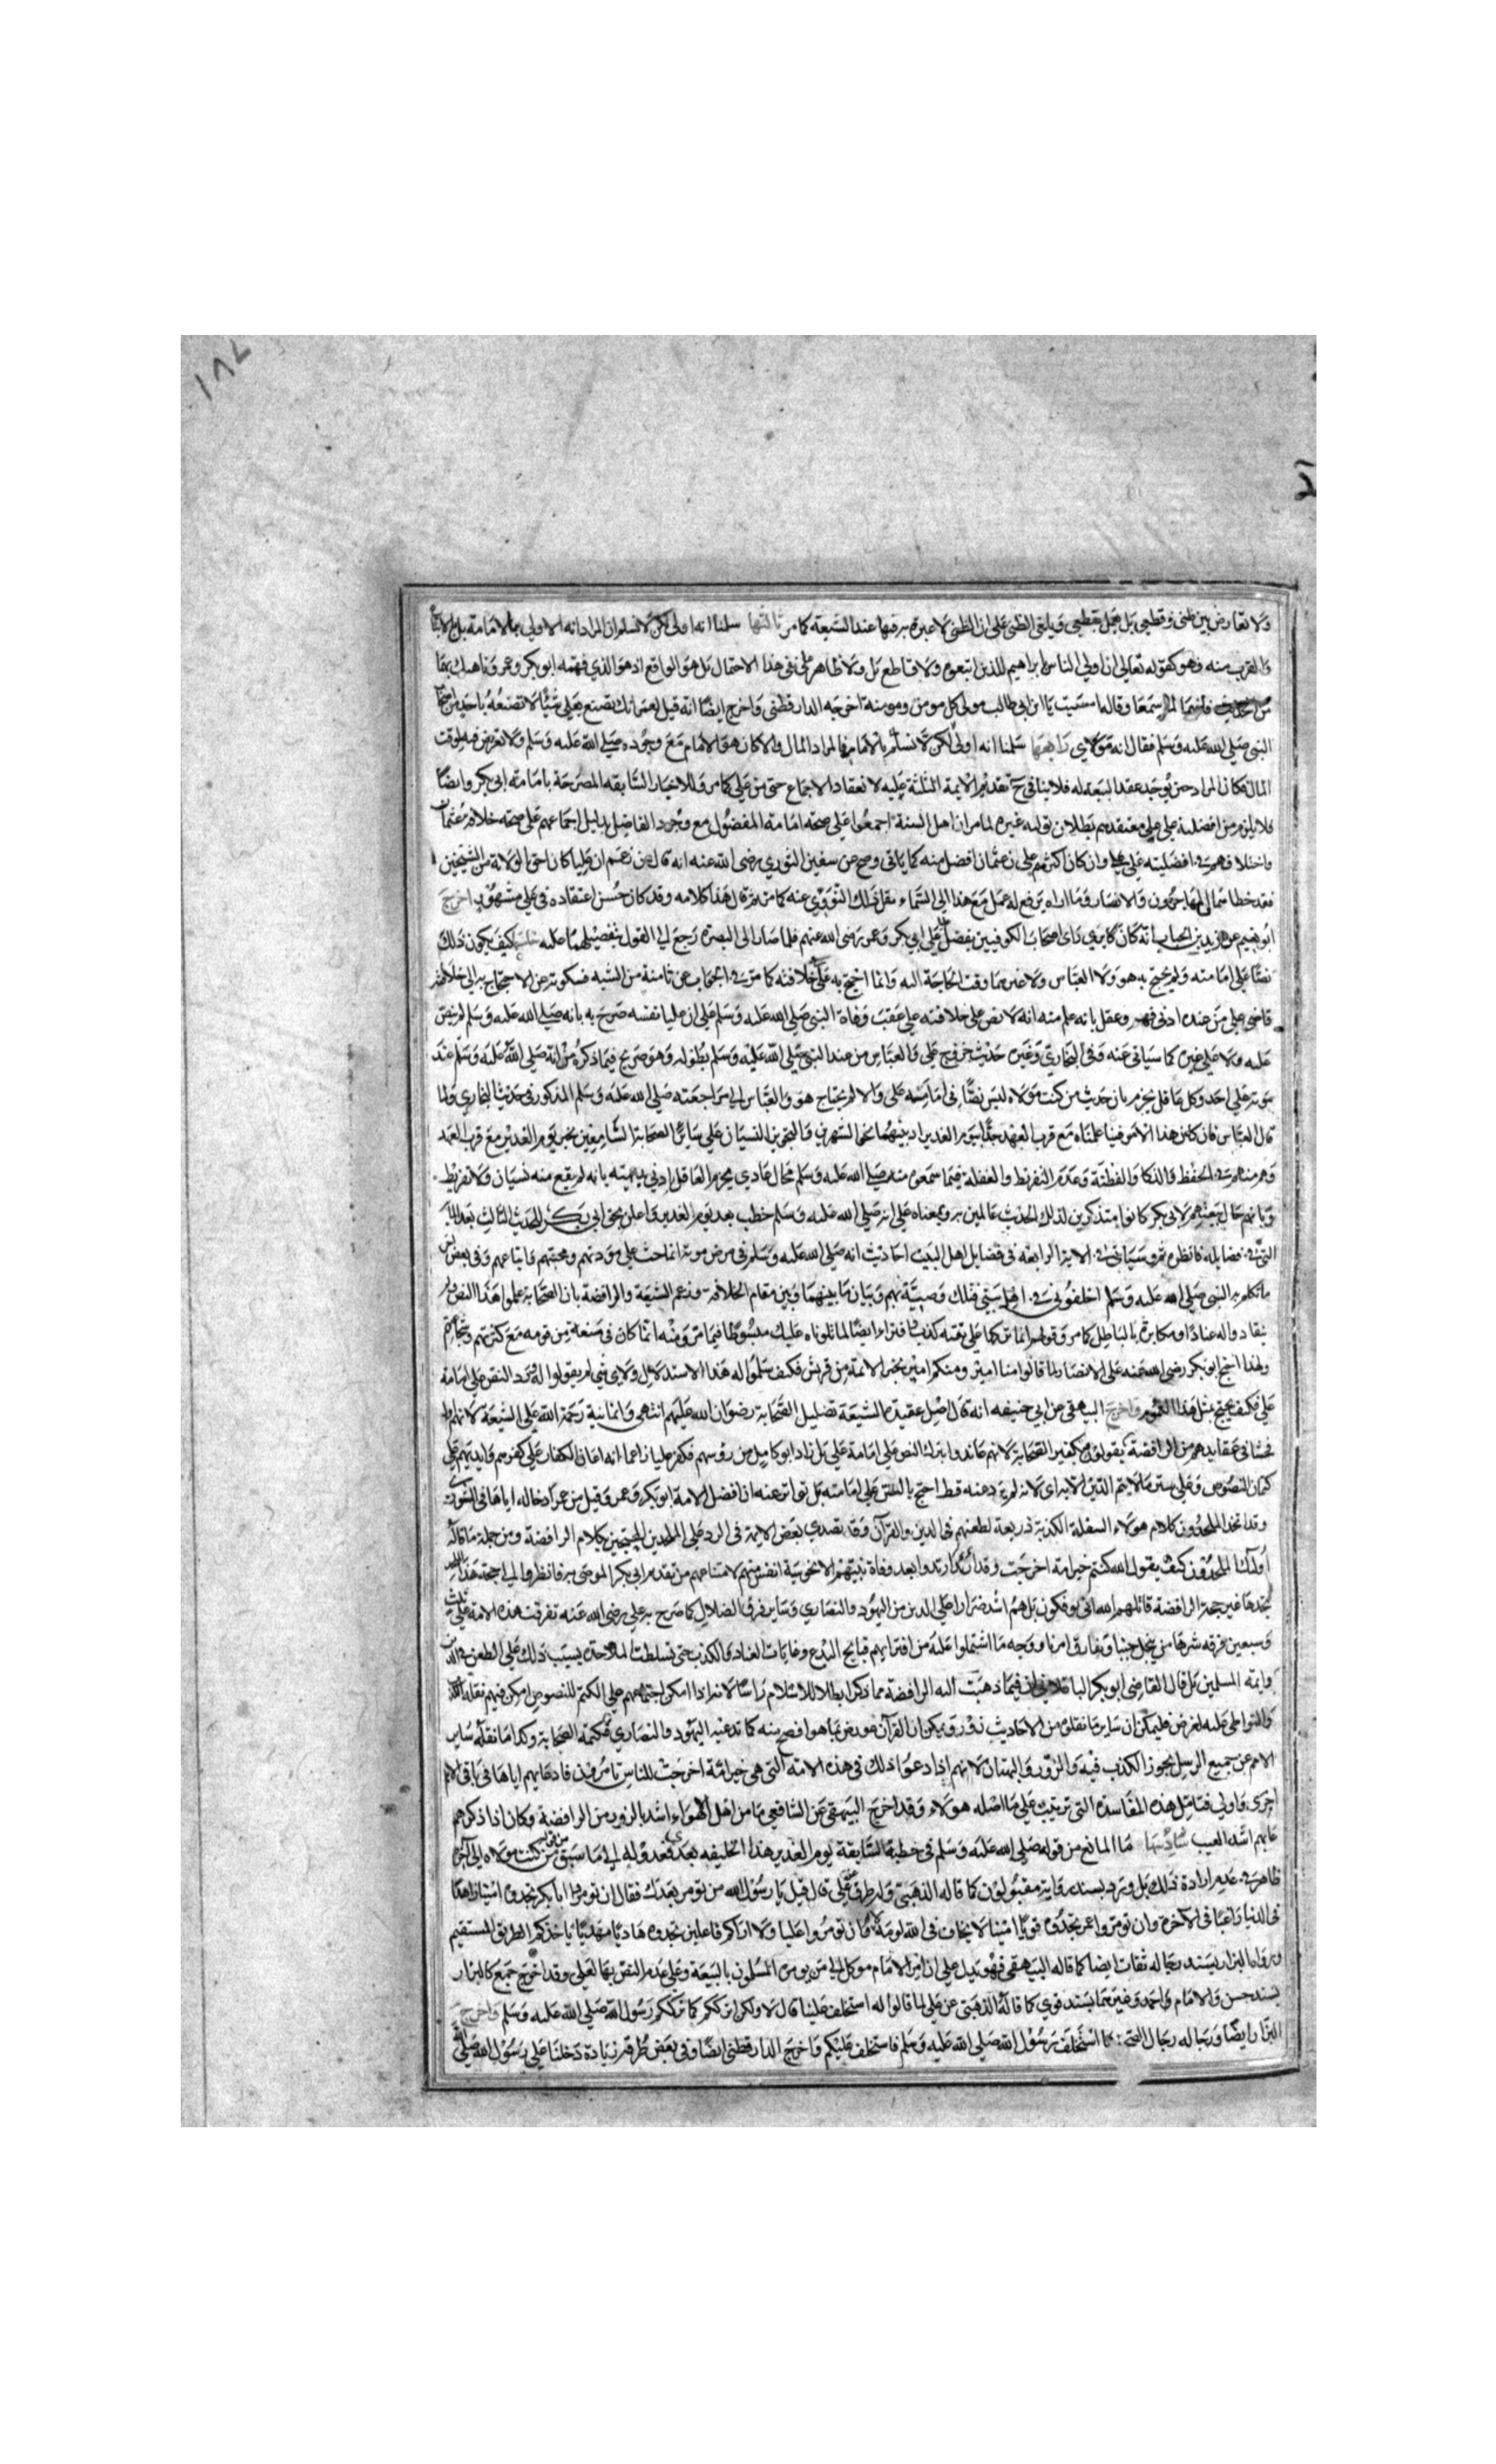 ١٨٧
ولا تعارض بين ظني وقطعي بل يعمل بقطعي ويلغى الظني على ان الظني لا عبرة به فيها عند الشيعة كما مر ثالثها سلمنا انه اولى لكن لا نسلم ان المراد انه الاولى بالامامة بل بالاتباع
والقرب منه فهو كقوله تعالى ان اولى الناس بابراهيم للذين اتبعوه ولا قاطع بل ولا ظاهر على نفي هذا الاحتمال بل هو الواقع اذ هو الذي فهمه ابو بكر وعمر وناهيك بهما
من الحديث فانهما لما سمعا وقالا امسيت يا ابن ابي طالب مولى كل مومن ومومنة اخرجه الدارقطني واخرج ايضا انه قيل لعمر انك تصنع بعلي شيئا لا تصنعه باحد من اصحاب
النبي صلى الله عليه وسلم فقال انه مولاي رابعها سلمنا انه اولى لكن لا نسلم بالامامة فالمراد المال والا كان هو الامام مع وجوده صلى الله عليه وسلم ولا تعرض فيه لوقت
المال فكان المراد حين يوجد عقد البيعة له فلا ينافي ح تقديم الايمة الثلثة عليه لانعقاد الاجماع حتى من علي كما مر وللاخبار السابقه المصرحة بامامة ابي بكر وايضا
فلا يلزم من افضلية علي على معتقدهم بطلان تولية غيره لما مر ان اهل السنة اجمعوا على صحة امامة المفضول مع وجود الفاضل بدليل اجماعهم على صحة خلافة عثمان
واختلافهم في افضليته على علي وان كان اكثرهم على ان عثمان افضل منه كما ياتي وصح عن سفين الثوري رضى الله عنه انه قال من زعم ان عليا كان احق بالولاية من الشيخين
فقد خطاهما والمهاجرون والانصار وما اراه يرفع له عمل مع هذا الى السماء نقل ذلك النووي عنه كما مر ثم قال هذا كلامه وقد كان حسن اعتقاده في علي مشهور اخرج
ابو نعيم عن زيد بن الحباب انه كان يرى راى اصحابه الكوفيين بفضل علي على ابي بكر وعمر رضى الله عنهم فلما صار الى البصرة رجع الى القول بتفضيلهما عليه كيف يكون ذلك
نصا على امامته ولم يحتج به هو ولا العباس ولا غيرهما وقت الحاجة اليه وانما احتج به علي في خلافته كما مر في الجواب عن ثامنة من الشبه فسكوته عن الاحتجاج به الى خلافته
قاض على من عنده ادنى فهم وعقل بانه علم منه انه لا نص على خلافته علي عقب وفاة النبي صلى الله عليه وسلم على ان عليا نفسه صرح به بانه صلى الله عليه وسلم لم ينص
عليه ولا على غيره كما سياتي عنه وفي البخاري وغيره حديث خروج علي والعباس من عند النبي صلى الله عليه وسلم بطوله وهو صريح فيما ذكره من انه صلى الله عليه وسلم عند
موته على احد وكل عاقل يجزم بان حديث من كنت مولاه ليس نصا في امامة علي والا لم يحتاج هو والعباس الى مراجعته صلى الله عليه وسلم المذكور في حديث البخاري ولما
قال العباس فان كان هذا الامر فينا علمناه مع قرب العهد جدا بيوم الغدير اذ بينهما نحو الشهرين والتجويز النسيان على ساير الصحابة السامعين بخبر يوم الغدير مع قرب العهد
وهم من هم في الحفظ والذكا والفطنة وعدم التفريط والغفلة فيما سمعوه منه صلى الله عليه وسلم محال عادي يجزم العاقل ادنى بديهته بانه لم يقع منه نسيان ولا تفريط
وبانهم حال بيعتهم لابي بكر كانوا متذكرين لذلك الحديث عالمين به وبمعناه على انه صلى الله عليه وسلم خطب بعد يوم الغدير واعلن بحق ابي بكر للحديث الثالث بعد المائة
التي في فضايله فانظره ثم وسياتي في الاية الرابعة في فضايل اهل البيت احاديث انه صلى الله عليه وسلم في مرض موته انما حث على مودتهم ومحبتهم واتباعهم وفي بعض اخر
ما تكلم به النبي صلى الله عليه وسلم اخلفوني في اهل بيتي فتلك وصية بهم وبيان ما بينهما وبين مقام الخلافة وزعم الشيعة والرافضة بان الصحابة علموا هذا النص ولم
ينقادوا له عنادا ومكابرة بالباطل كما مر وقولهم انما تركها علي تقية كذب وافتراء ايضا لما تلوناه عليك مبسوطا فيما مر ومنه انما كان في منعة من قومه مع كثرتهم وشجاعتهم
ولهذا احتج ابو بكر رضى الله عنه على الانصار لما قالوا منا امير ومنكم امير بخبر الائمة من قريش فكيف سلموا له هذا الاستدلال ولاي شي لم يقولوا له ورد النص على امامة
علي فكيف يحتج بمثل هذا العموم واخرج البيهقي عن ابي حنيفه انه قال اصل عقيدة الشيعة تضليل الصحابة رضوان الله عليهم انتهى وانما نبه رحمة الله على الشيعة لانهم اقل
فحشا في عقايدهم من الرافضة يقولون بكفير الصحابة لانهم عاندوا بترك النص على امامة علي بل زاد ابو كامل من رؤسهم فكفر عليا زاعما انه اعان الكفار على كفرهم وايدهم على
كتمان النصوص وعلى ستر ما لا يتم الدين الا به اى لانه لم يرد عنه قط احتج بالنص على امامته بل تواتر عنه ان افضل الامة ابو بكر وعمر وقبل من عمر ادخاله اياها في الشورى
وقد اتخذ الملحدون كلام هولاء السفلة الكذبة ذريعة لطعنهم في الدين والقرآن وقد تصدى بعض الايمة في الرد على الملحدين المحتجين بكلام الرافضة ومن جملة ما قاله
اولئك الملحدون كيف يقول الله كنتم خير امة اخرجت وقد ارتدوا بعد وفاة نبيهم الا نحو ستة انفس منهم لامتناعهم من تقديم ابي بكر الموصى به فانظروا الى حجة هذا الملحد
تجدها عين حجة الرافضة قاتلهم الله انى يوفكون بل هم اشد ضررا على الدين من اليهود والنصارى وساير فرق الضلال كما صرح به علي رضى الله عنه تفرقت هذه الامة على ثلاث
وسبعين فرقه شرها من ينتحل حبنا ويفارق امرنا ووجه ما اشتملوا عليه من افترائهم قبايح البدع وغايات العناد والكذب حتى تسلطت الملاحدة بسبب ذلك على الطعن في الدين
وايمة المسلمين بل قال القاضى ابو بكر الباقلاني ان فيما ذهبت اليه الرافضة مما ذكر ابطالا للاسلام راسا لانه اذا امكن اجتماعهم على الكتم للنصوص امكن فيهم نقل الكذب
والتواطى عليه لغرض فليمكن ان ساير ما نقلوه من الاحاديث زور ويمكن ان القرآن عورض بما هو افصح منه كما تدعيه اليهود والنصارى فكتمه الصحابة وكذا ما نقله ساير
الامم عن جميع الرسل يجوز الكذب فيه والزور والبهتان لانهم اذا ادعوا ذلك في هذه الامة التي هي خير امة اخرجت للناس تامرون فادعايهم اياها في باقي الامم
احرى واولى فتامل هذه المفاسد التي ترتبت على ما اصله هولاء وقد اخرج البيهقي عن الشافعي ما من اهل الاهواء اشد بالزور من الرافضة وكان اذا ذكرهم
عابهم اشد العيب سادسها ما المانع من قوله صلى الله عليه وسلم في خطبة السابقة يوم الغدير هذا الخليفه بعدي فعدوله الى ما سبق من كنت مولاه الى اخره
ظاهر في عدم ارادة ذلك بل ورد بسند رواته مقبولون كما قاله الذهبي وله طرق عن علي قال قيل يا رسول الله من نومر بعدك فقال ان تومروا ابا بكر تجدوه امينا زاهدا
في الدنيا راغبا في الآخرة وان تومروا عمر تجدوه قويا امينا لا يخاف في الله لومة لايم وان تومروا عليا ولا اراكم فاعلين تجدوه هاديا مهديا ياخذ بكم الطريق المستقيم
ورواه البزار بسند رجاله ثقات ايضا كما قاله البيهقي فهو يدل على ان امر الامام موكل الى من يومره المسلمون بالبيعة وعلى عدم النص بها لعلي وقد اخرج جمع كالبزار
بسند حسن والامام احمد وغيرهما بسند قوي كما قاله الذهبي عن علي لما قالوا له استخلف علينا قال لا ولكن اترككم كما ترككم رسول الله صلى الله عليه وسلم واخرج
البزار ايضا ورجاله رجال الصحيح ما استخلف رسول الله صلى الله عليه وسلم فاستخلف عليكم واخرج الدارقطني ايضا وفي بعض طرقه زيادة دخلنا على رسول الله صلى الله